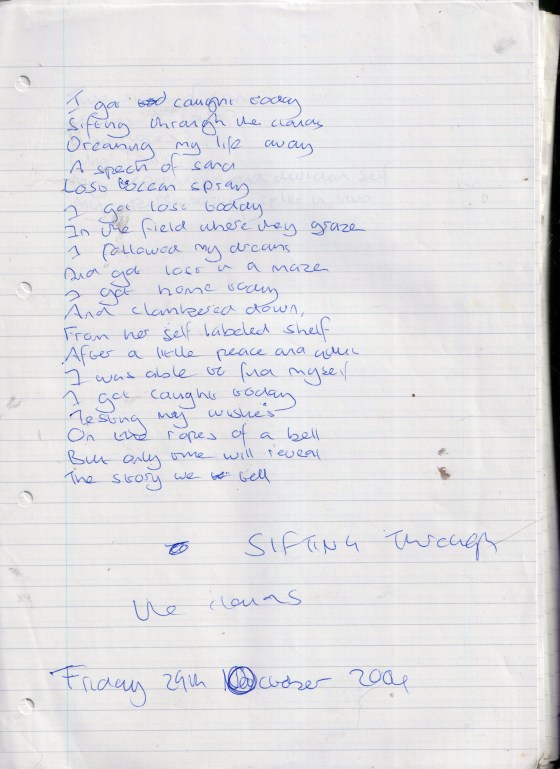 I got caught today
Sifting through the clouds
Dreaming my life away
A speck of sand
Lost ocean spray
I got lost today
In the field where they graze
I followed my dreams
And got lost in a maze
I got home today
And clambered down,
From her self labeled shelf
After a little peace and
I was able to find myself
I got caught today
Testing my wishes
On the ropes of a bell
But only time will reveal
The story we tell
SIFTING through
the clouds
Friday 29th October 2004